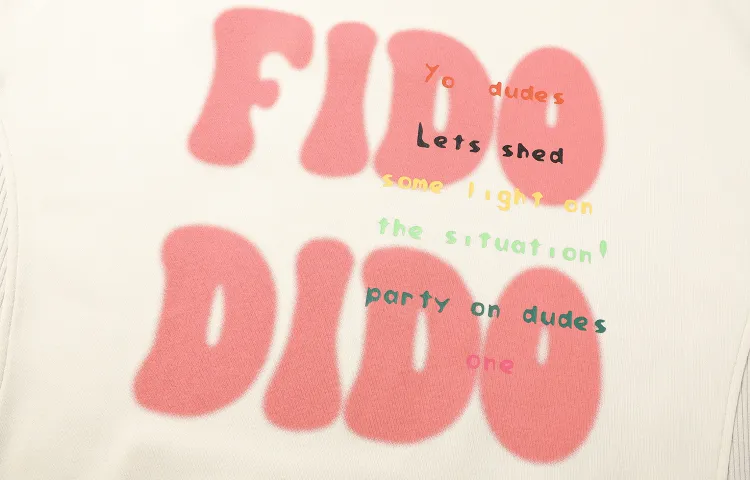 FIDO
Yo dudes
Lets shed
some light on
the situation!
DIDO
party on dudes
one